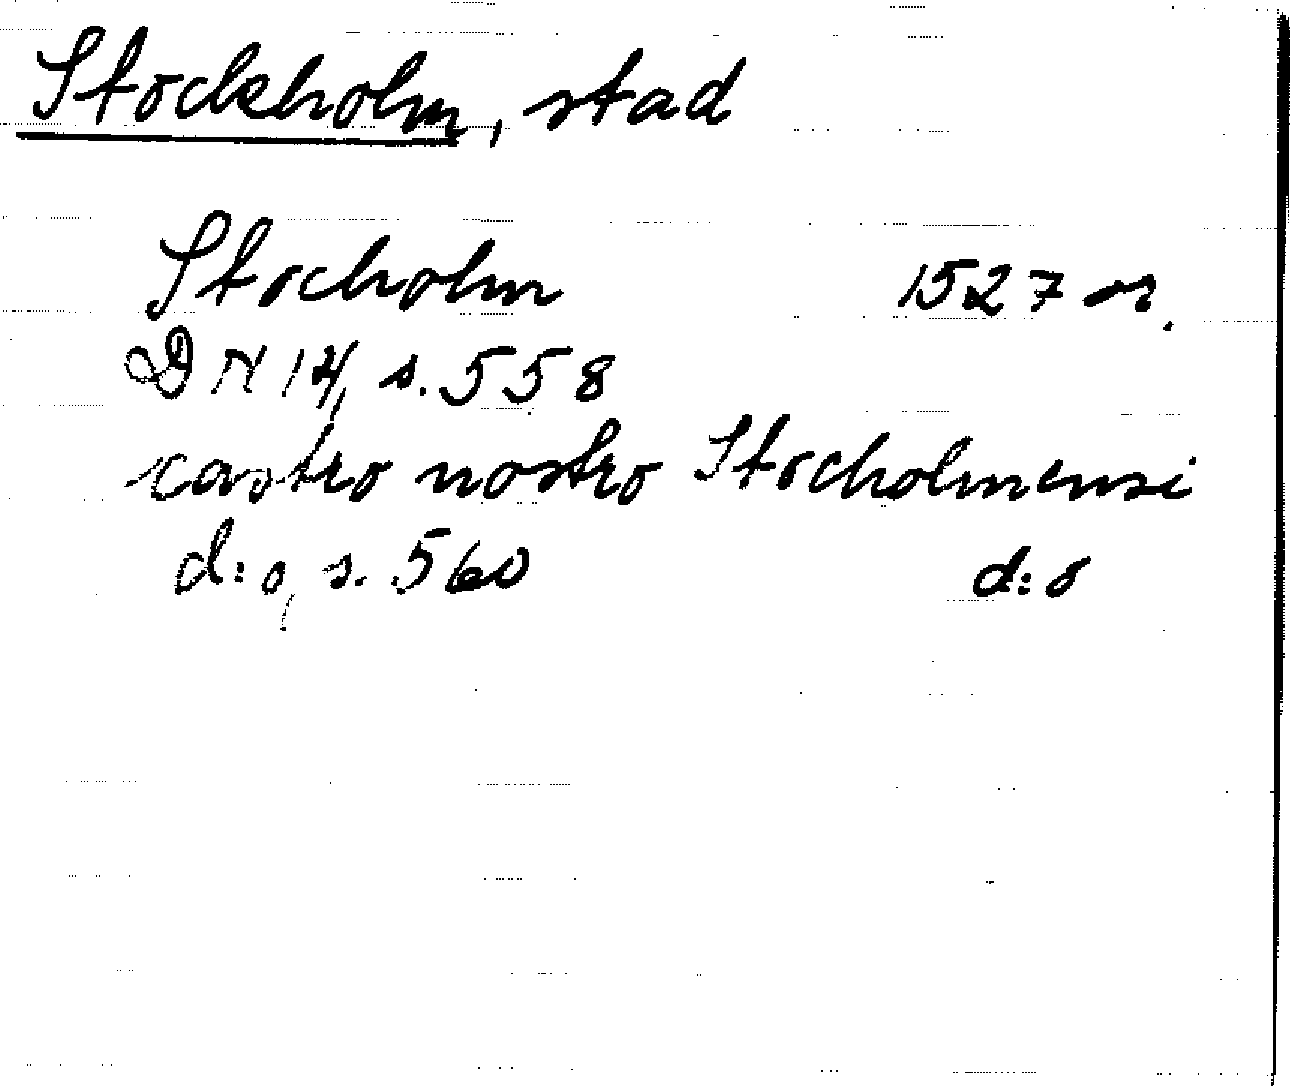 Stockholm, stad
Stocholm 1527 or.
DN 14, s. 558
castro nostro Stocholmensi
d:o, s. 560 d:o